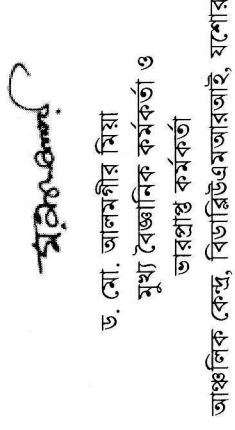 ড. মো. আলমগীর মিয়া
মুখ্য বৈজ্ঞানিক কর্মকর্তা ও
ভারপ্রাপ্ত কর্মকর্তা
আঞ্চলিক কেন্দ্র, বিডাব্লিউএমআরআই, যশোর